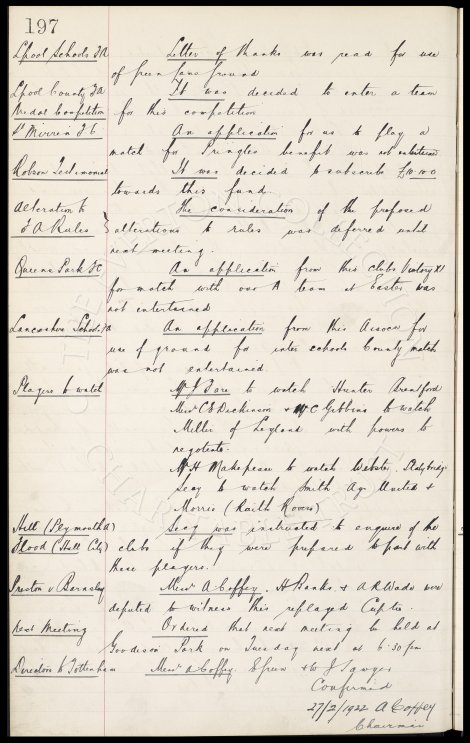 197
Lpool Schools F.A. Letter of thanks was read for use
of Green Lane Ground
Lpool County F.A. It was decided to enter a team
Medal Competition for this competition
St Mirren F.C. An application for us to play a
match for Pringles benefit was not entertained
Robson Testimonial It was decided to subscribe £10.10.0
towards this fund.
Alteration to The consideration of the proposed
F A Rules } alterations to rules was deferred until
next meeting.
Queens Park F.C. An application from this clubs Victory XI
for match with our A team at Easter was
not entertained
Lancashire Schools F.A. An application from this Assocn for
use of ground for inter schools County match
was not entertained.
Players to watch Mr J Bare to watch Hunter Brentford
Messrs C E Dickinson & W C Gibbins to watch
Miller of Leyland with powers to
negotiate.
Mr H Makepeace to watch Webster, Stalybridge
Secy to watch Smith Ayr United &
Morris (Raith Rovers)
Hill (Plymouth A) Secy was instructed to enquire of the
Flood (Hull City) clubs if they were prepared to part with
these players.
Preston v Barnsley Messrs A Coffey, H Banks & A R Wade were
deputed to witness this replayed Cuptie.
Next Meeting Ordered that next meeting be held at
Goodison Park on Tuesday next at 6.30 pm
Directors to Tottenham Messrs A Coffey, E Green & W J Sawyer
Confirmed
27/2/1922 A Coffey
Chairman